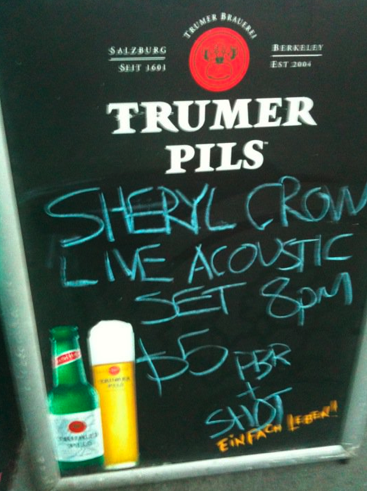 TRUMER BRAUEREI
SALZBURG
SEIT 1601
BERKELEY
EST 2004
TRUMER
PILS
SHERYL CROW
LIVE ACOUSTIC
SET 8pm
$5 PBR
+
SHOT
EINFACH LEBEN!!